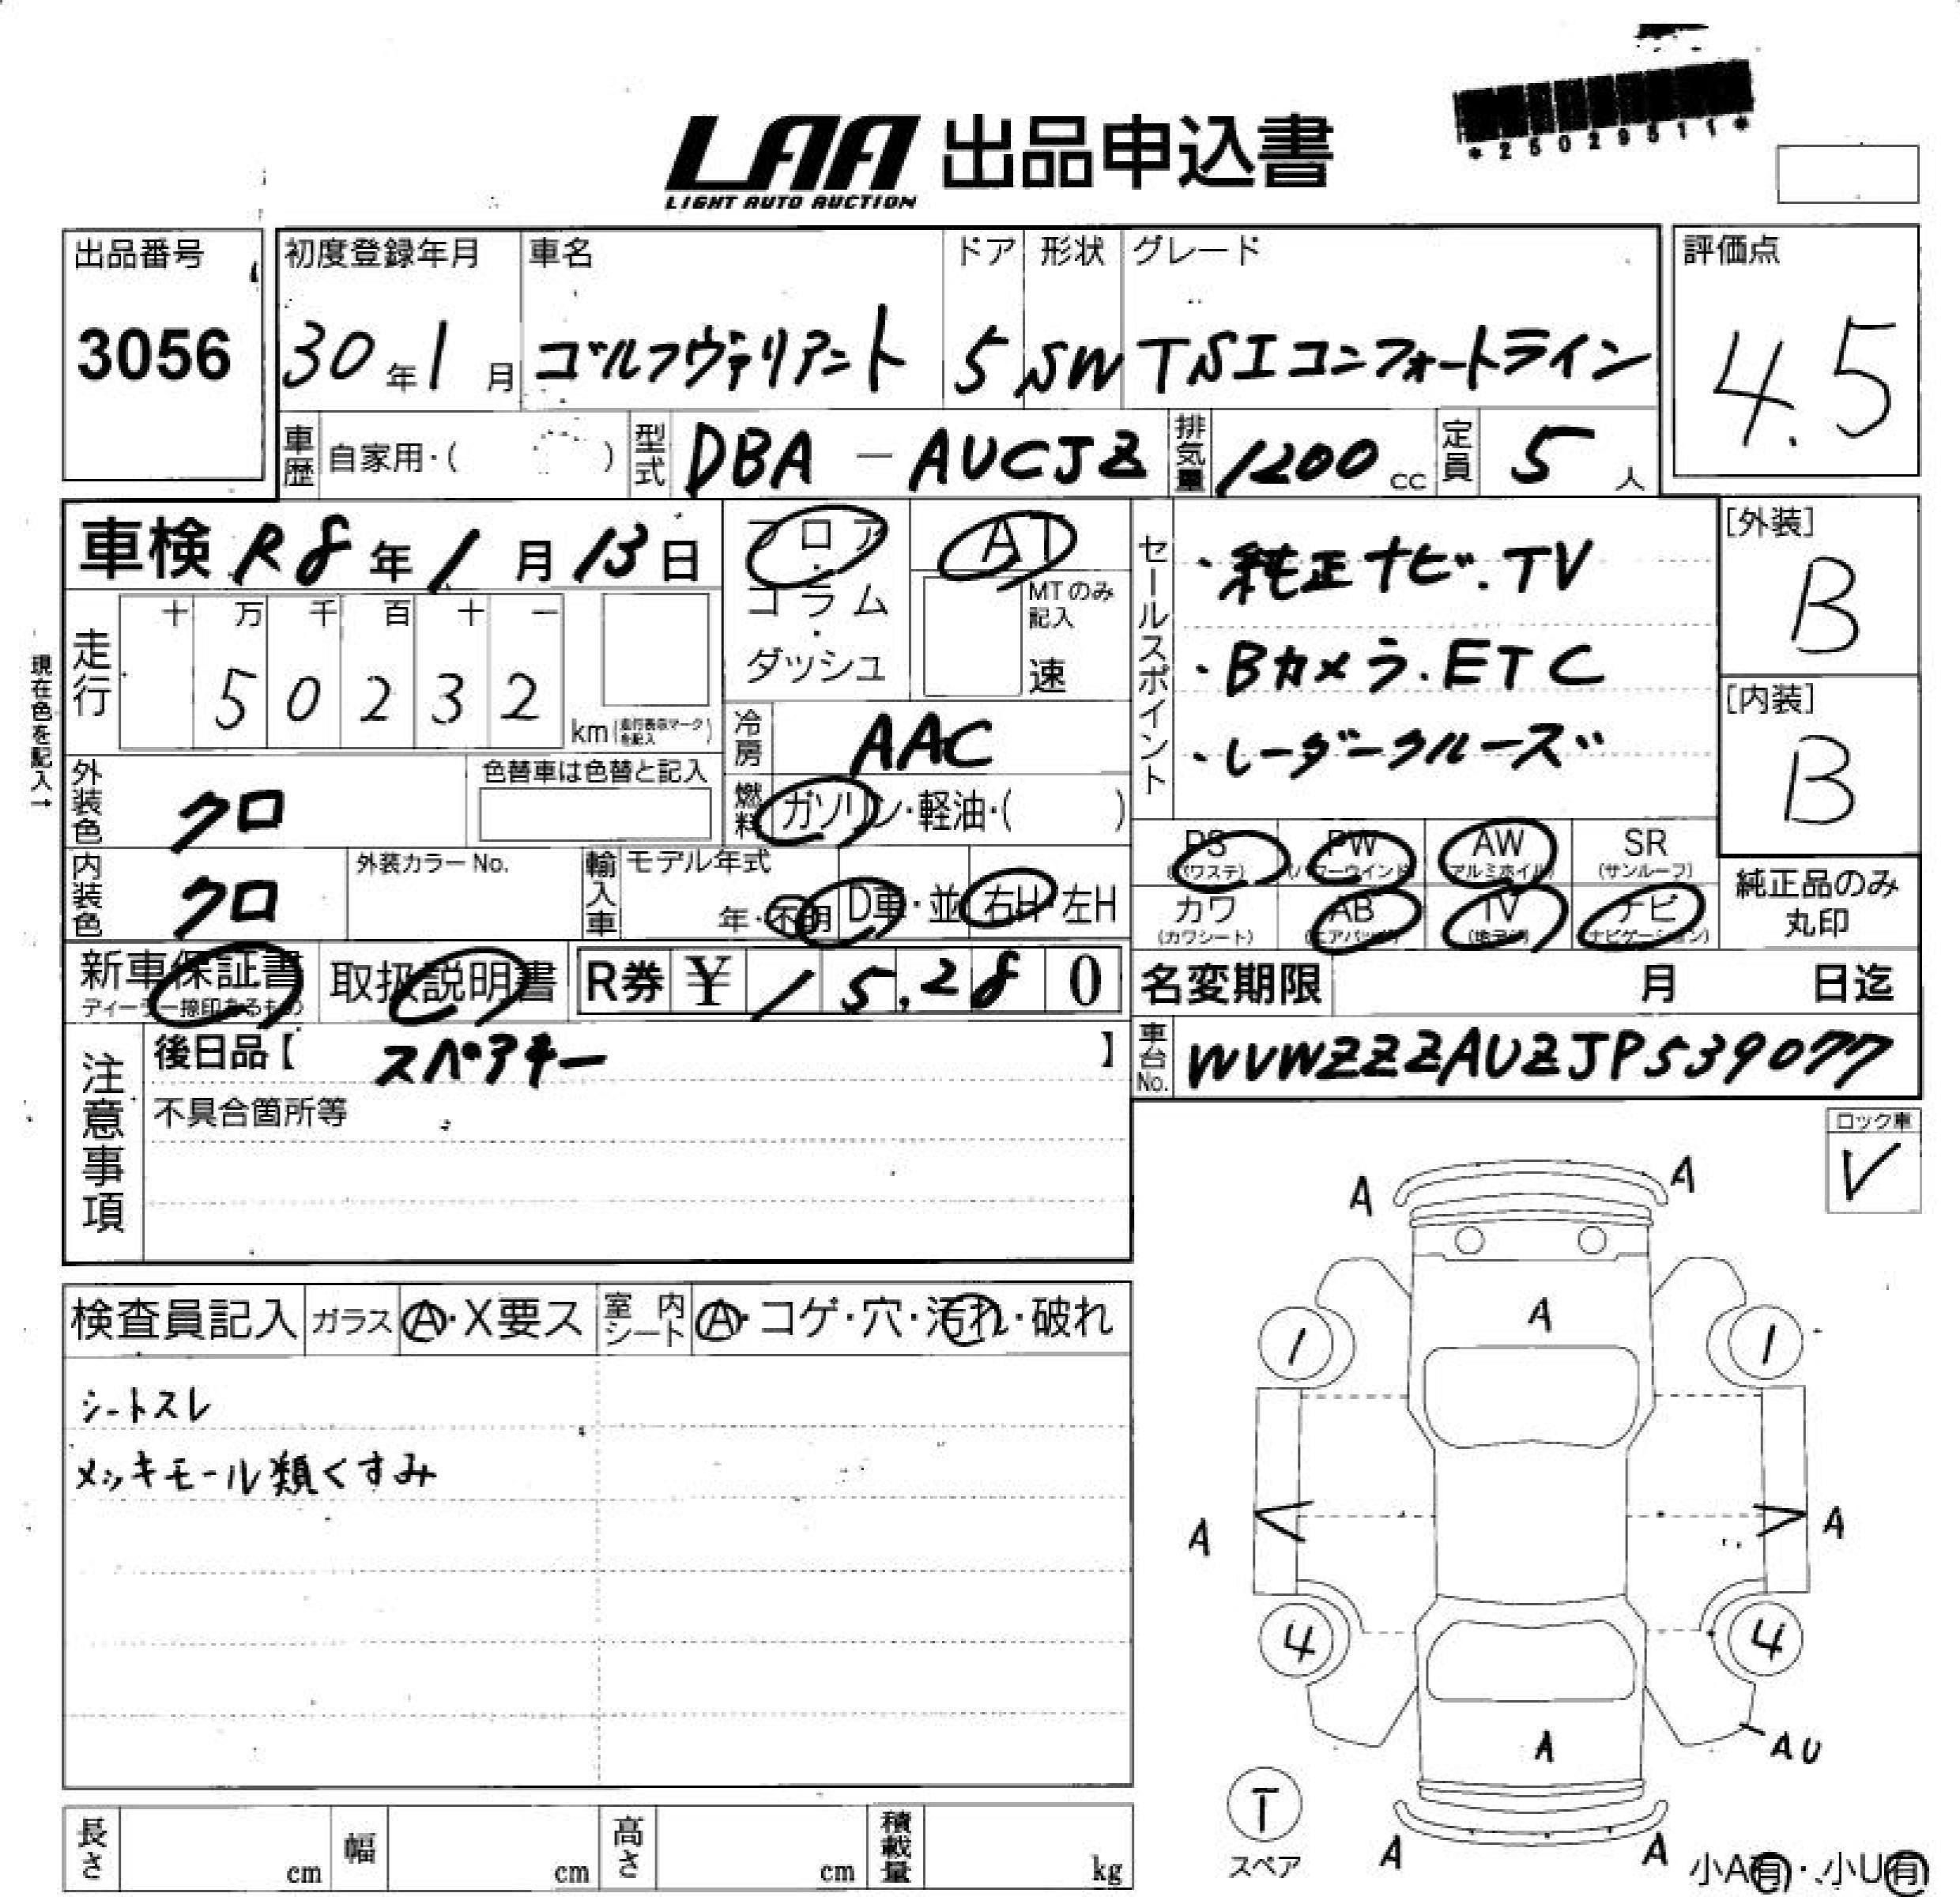 LAA 出品申込書
LIGHT AUTO AUCTION
出品番号
3056
初度登録年月
30年1月
車名
ゴルフヴァリアント
ドア
5
形状
SW
グレード
TSIコンフォートライン
評価点
4.5
車歴 自家用・( )
型式 DBA-AUCJZ
排気量 1200cc
定員 5人
車検 R8年1月13日
フロア・コラム・ダッシュ
AT
MTのみ記入
速
セールスポイント
・純正ナビ.TV
・Bカメラ.ETC
・レーダークルーズ
[外装]
B
[内装]
B
現在色を記入→
走行
十 万 千 百 十 一
5 0 2 3 2
km(走行表示マークを記入)
冷房 AAC
外装色 クロ
色替車は色替と記入
燃料 ガソリン・軽油・( )
内装色 クロ
外装カラーNo.
輸入車
モデル年式
年・不明
D車・並
右H・左H
PS (パワステ)
PW (パワーウインド)
AW (アルミホイル)
SR (サンルーフ)
カワ (カワシート)
AB (エアバッグ)
TV
ナビ (ナビゲーション)
純正品のみ
丸印
新車保証書
ディーラー捺印あるもの
取扱説明書
R券 ¥ 15,280
名変期限 月 日迄
注意事項
後日品【 スペアキー 】
不具合箇所等
車台No. WVWZZZAUZJP539077
ロック車
✓
検査員記入
ガラス A・X要ス
室内シート A・コゲ・穴・汚れ・破れ
シートスレ
メッキモール類くすみ
A A
A
1 1
A A
4 4
A
AU
T
スペア
A A
小A有・小U有
長さ cm
幅 cm
高さ cm
積載量 kg